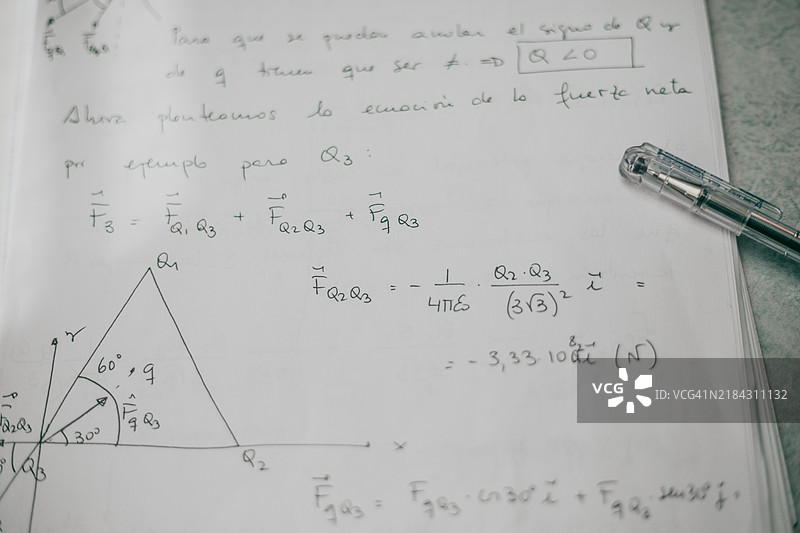 Para que se puedan anular el signo de Q y
de q tienen que ser ≠. => Q < 0
Ahora planteamos la ecuación de la fuerza neta
por ejemplo para Q₃ :
F⃗₃ = F⃗Q₁Q₃ + F⃗Q₂Q₃ + F⃗qQ₃
Q₁
F⃗Q₂Q₃ = - 1/4πε₀ · Q₂·Q₃/(3√3)² i⃗ =
= - 3,33·10⁸Q² i⃗ (N)
Y
60° q
F⃗qQ₃
30°
F⃗Q₂Q₃
Q₃
Q₂
x
F⃗qQ₃ = FqQ₃ · cos30° i⃗ + FqQ₃ · sen30° j⃗.
vcg.com
ID: VCG41N2184311132